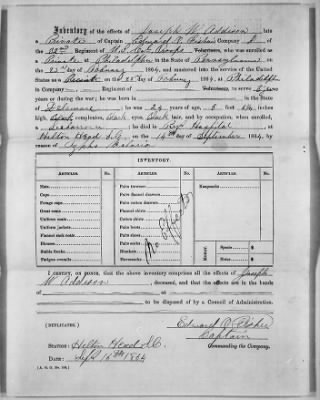 Inventory of the effects of Joseph W. Addison late
a Private of Captain Edward R. Fisher Company
of the Regiment of U.S. Col. Troops Volunteers, who was enrolled as
a Private at Philadelphia in the State of Pennsylvania on
the 22 day of February 1864, and mustered into the service of the United States
as a Private on 22 day of February 1864, at Philadelphia
in Company Regiment of Volunteers, to serve 3 years
years or during the war; he was born in in the State
of Delaware he was 24 years of age, 5 feet inches
high, Dark complexion, Dark eyes, Black hair, and by occupation, when enrolled,
a he died in Hospital
at Hilton Head S.C. on the day of September 1864, by
reason of Typho Malaria
INVENTORY.
ARTICLES. No. ARTICLES. No. ARTICLES. No.
Hats Pairs trowsers Knapsacks
Caps Pairs flannel drawers
Forage caps Pairs cotton drawers
Great coats Flannel shirts
Uniform coats Pairs boots
Uniform jackets Pairs shoes
Flannel sack coats Pairs socks
Blouses Blankets MONEY. Specie $
Stable frocks Notes $
Fatigue overalls Haversacks
No Effects
I CERTIFY, ON HONOR, that the above inventory comprises all the effects of Joseph
W. Addison, deceased, and that the effects are in the hands
of
to be disposed of by a Council of Administration.
(DUPLICATES.) Edward R. Fisher
Captain
STATION: Hilton Head S.C. Commanding the Company.
DATE: Sept 16th 1864